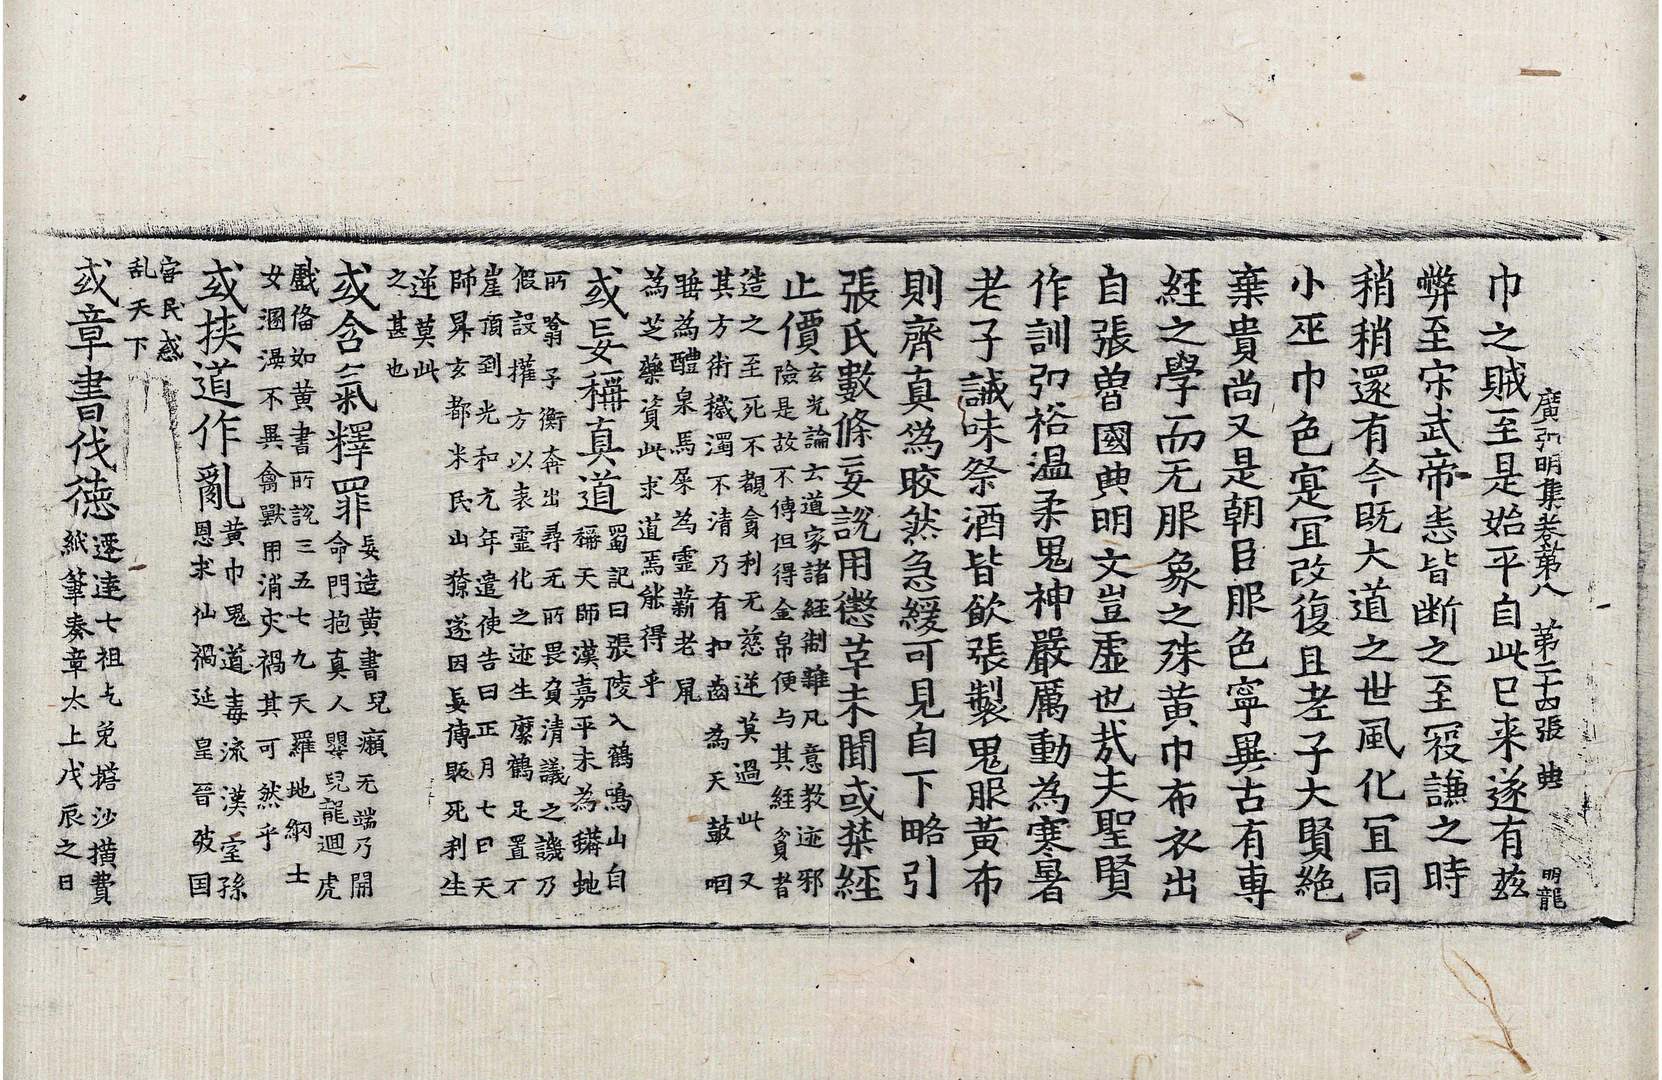 廣弘明集卷第八 第二十四張 典 明龍
巾之賊至是始平自此已来遂有兹
弊至宋武帝悉皆断之至寇謙之時
稍稍還有今既大道之世風化冝同
小巫巾色寔冝改復且老子大賢絶
棄貴尚又是朝臣服色寧異古有專
經之學而无服象之殊黄巾布衣出
自張魯國典明文豈虛也㢤夫聖賢
作訓弘裕温柔鬼神嚴厲動為寒暑
老子誡味祭酒皆飲張製鬼服黄布
則齊真偽晈然急緩可見自下略引
張氏數條妄説用懲革未聞或禁經
止價玄光論云道家諸經制雜凡意教迹邪
險是故不傳但得金帛便与其經貪者
造之至死不覩貪利无慈逆莫過此又
其方術穢濁不清乃有扣齒為天鼓咽
唾為醴泉馬屎為靈薪老鼠
為芝藥資此求道焉能得乎
或妄稱真道蜀記曰張陵入鶴鳴山自
稱天師漢嘉平末為蟒虵
所噏子衡奔出尋无所畏負清議之譏乃
假設權方以表靈化之迹生縻鶴足置石
崖頂到光和元年遣使告曰正月七日天
師昇玄都米民山獠遂因妄傳販死利生
逆莫此
之甚也
或含氣釋罪妄造黄書兒癩无端乃開
命門抱真人嬰兒龍迴虎
戲俻如黄書所説三五七九天羅地網士
女溷漫不異禽獸用消灾禍其可然乎
或挾道作亂黄巾鬼道毒流漢室孫
恩求仙禍延皇晉破国
害民惑
乱天下
或章書伐德遷達七祖乞免擔沙横費
紙筆奏章太上戊辰之日